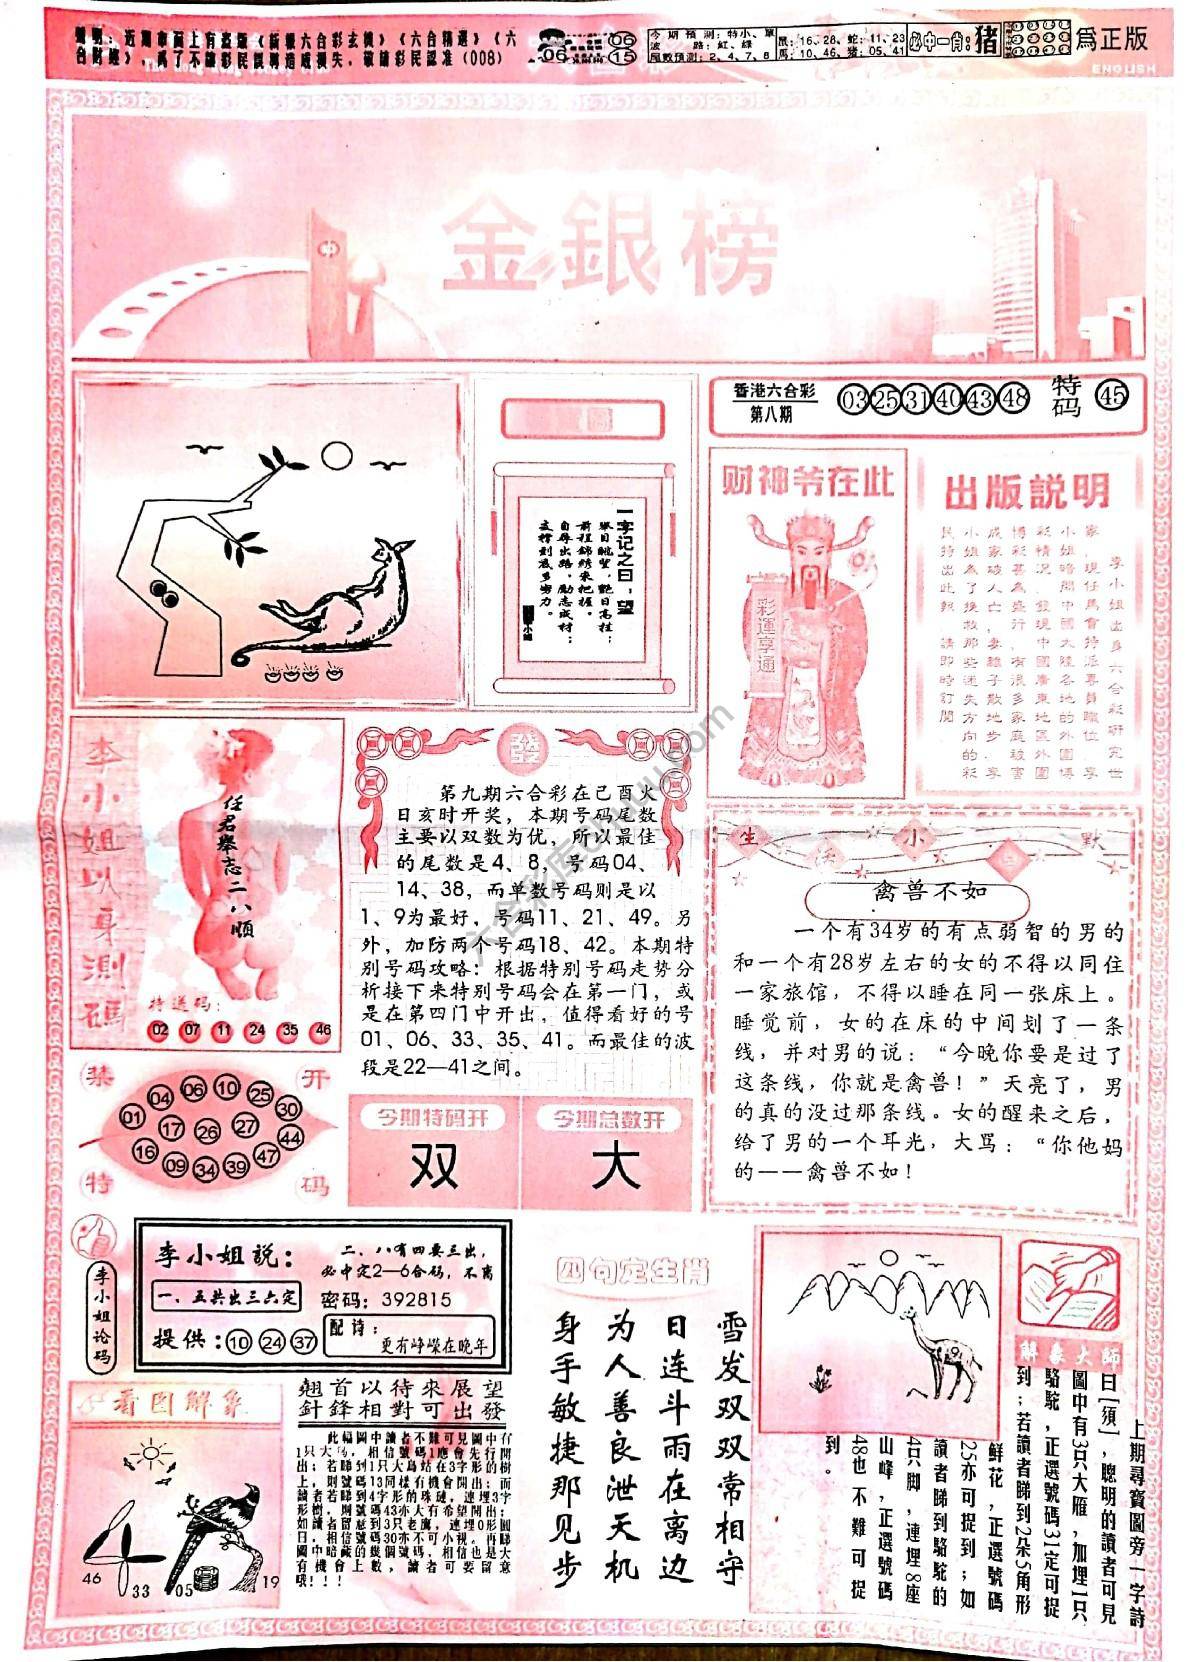 聲明：近期市面上有盜版《新報六合彩玄機》《六合精選》《六
合財經》，爲了不讓彩民誤購造成損失，敬請彩民認准（008）
06
06
15
今期預測：特小、單
波路：紅、綠
尾數預測：2、4、7、8
鼠：16、28、蛇：11、23
馬：10、46、豬：05、41
必中一肖：猪
爲正版
ENGLISH
金銀榜
香港六合彩
第八期
03 25 31 40 43 48
特码
45
一字记之曰：望
举目眺望，艳日高挂；
前程錦綉来把握。
自尋出路，励志成材；
支撑到底多努力。
财神爷在此
彩運享通
出版説明
李小姐以身測碼
任君舉忘二八順
特送码：
02 07 11 24 35 46
發
第九期六合彩在己酉火
日亥时开奖，本期号码尾数
主要以双数为优，所以最佳
的尾数是4、8，号码04、
14、38，而单数号码则是以
1、9为最好，号码11、21、49。另
外，加防两个号码18、42。本期特
别号码攻略：根据特别号码走势分
析接下来特别号码会在第一门，或
是在第四门中开出，值得看好的号
01、06、33、35、41。而最佳的波
段是22—41之间。
生活小幽默
禽兽不如
一个有34岁的有点弱智的男的
和一个有28岁左右的女的不得以同住
一家旅馆，不得以睡在同一张床上。
睡觉前，女的在床的中间划了一条
线，并对男的说：“今晚你要是过了
这条线，你就是禽兽！”天亮了，男
的真的没过那条线。女的醒来之后，
给了男的一个耳光，大骂：“你他妈
的——禽兽不如！
禁开特码
01 04 06 10 25 30
17 26 27 44
16 09 34 39 47
今期特码开
双
今期总数开
大
李小姐论码
李小姐説：
一、五共出三六定
提供：10 24 37
二、八有四要三出，
必中定2—6合码，不离
密码：392815
配诗：
更有峥嵘在晚年
四句定生肖
雪发双双常相守
日连斗雨在离边
为人善良泄天机
身手敏捷那见步
91
解象大師
上期尋寶圖旁一字詩
曰[須]，聰明的讀者可見
圖中有3只大雁，加埋1只
駱駝，正選號碼31定可捉
到；若讀者睇到2朵5角形
鮮花，正選號碼
25亦可捉到；如
讀者睇到駱駝的
4只脚，連埋8座
山峰，正選號碼
48也不難可捉
到。
看图解象
46
33
05
19
翹首以待來展望
針鋒相對可出發
此幅圖中讀者不難可見圖中有
1只大鳥，相信號碼1應會先行開
出；若睇到1只大鳥站在3字形的樹
上，則號碼13同樣有機會開出；而
讀者若睇到4字形的珠鏈，連埋3字
形樹，則號碼43亦大有希望開出；
如讀者留意到3只老鷹，連埋0形圓
日，相信號碼30亦不可小視。再睇
圖中暗藏的幾個號碼，相信也是大
有機會上數，讀者可要留意
哦！！！